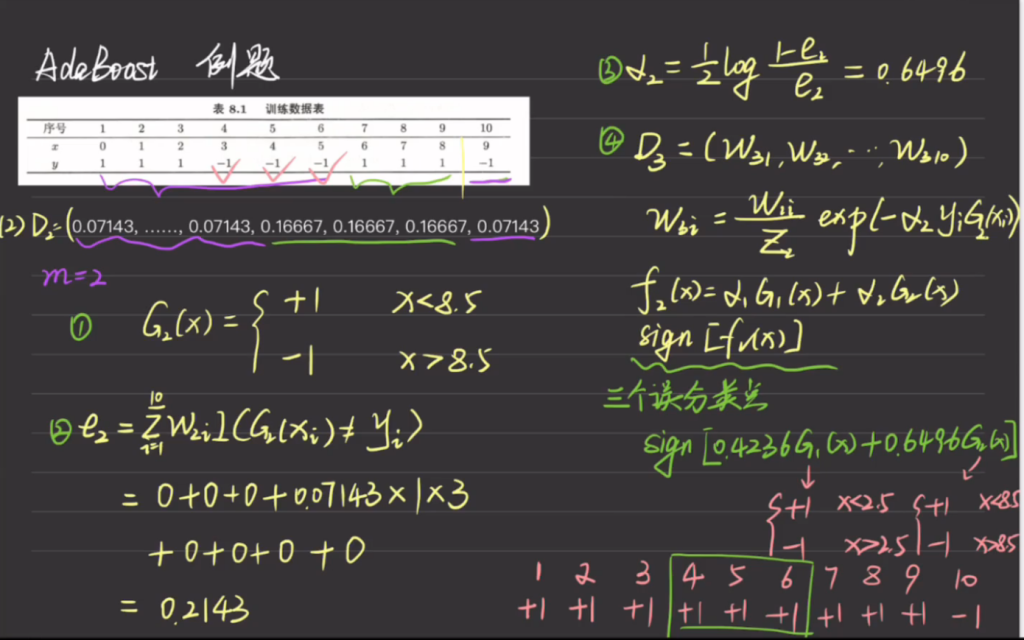 AdaBoost 例题
表 8.1 训练数据表
序号 1 2 3 4 5 6 7 8 9 10
x 0 1 2 3 4 5 6 7 8 9
y 1 1 1 -1 -1 -1 1 1 1 -1
(2) D₂=(0.07143, ……, 0.07143, 0.16667, 0.16667, 0.16667, 0.07143)
m=2
① G₂(x) = { +1 x<8.5
-1 x>8.5
② e₂ = Σ_{i=1}^{10} W₂ᵢ I(G₂(xᵢ) ≠ yᵢ)
= 0+0+0+0.07143×1×3
+0+0+0+0
= 0.2143
③ α₂ = 1/2 log (1-e₂)/e₂ = 0.6496
④ D₃ = (W₃₁, W₃₂, ⋯, W₃₁₀)
W₃ᵢ = W₂ᵢ/Z₂ exp(-α₂ yᵢ G₂(xᵢ))
f₂(x) = α₁G₁(x) + α₂G₂(x)
sign[f₂(x)]
三个误分类点
sign[0.4236G₁(x)+0.6496G₂(x)]
{ +1 x<2.5 { +1 x<8.5
-1 x>2.5 -1 x>8.5
1 2 3 4 5 6 7 8 9 10
+1 +1 +1 +1 +1 +1 +1 +1 +1 -1